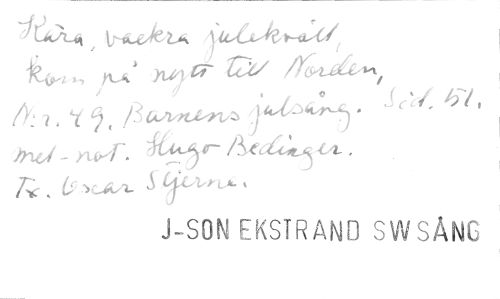 Kära, vackra julekväll,
kom på nytt till Norden,
N:r. 49. Barnens julsång. Sid. 51.
mel-not. Hugo Bedinger.
Tx. Oscar Stjerne.
J-SON EKSTRAND SW SÅNG